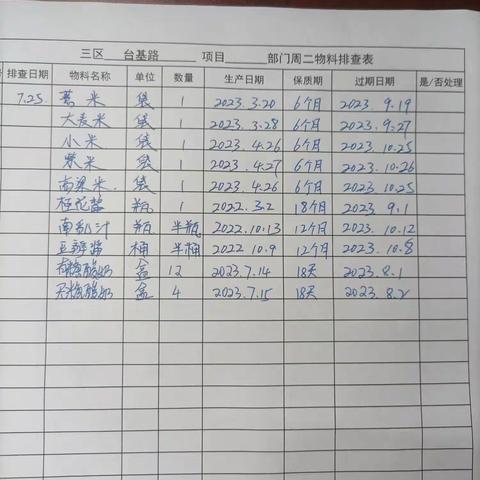 三区 台基路 项目 部门周二物料排查表
排查日期 物料名称 单位 数量 生产日期 保质期 过期日期 是/否处理
7.25 薏米 袋 1 2023.3.20 6个月 2023.9.19
大麦米 袋 1 2023.3.28 6个月 2023.9.27
小米 袋 1 2023.4.26 6个月 2023.10.25
紫米 袋 1 2023.4.27 6个月 2023.10.26
高粱米. 袋 1 2023.4.26 6个月 2023.10.25
桂花酱 瓶 1 2022.3.2 18个月 2023.9.1
南乳汁 瓶 半瓶 2022.10.13 12个月 2023.10.12
豆瓣酱 桶 半桶 2022.10.9 12个月 2023.10.8
酸奶 盒 12 2023.7.14 18天 2023.8.1
酸奶 盒 4 2023.7.15 18天 2023.8.2